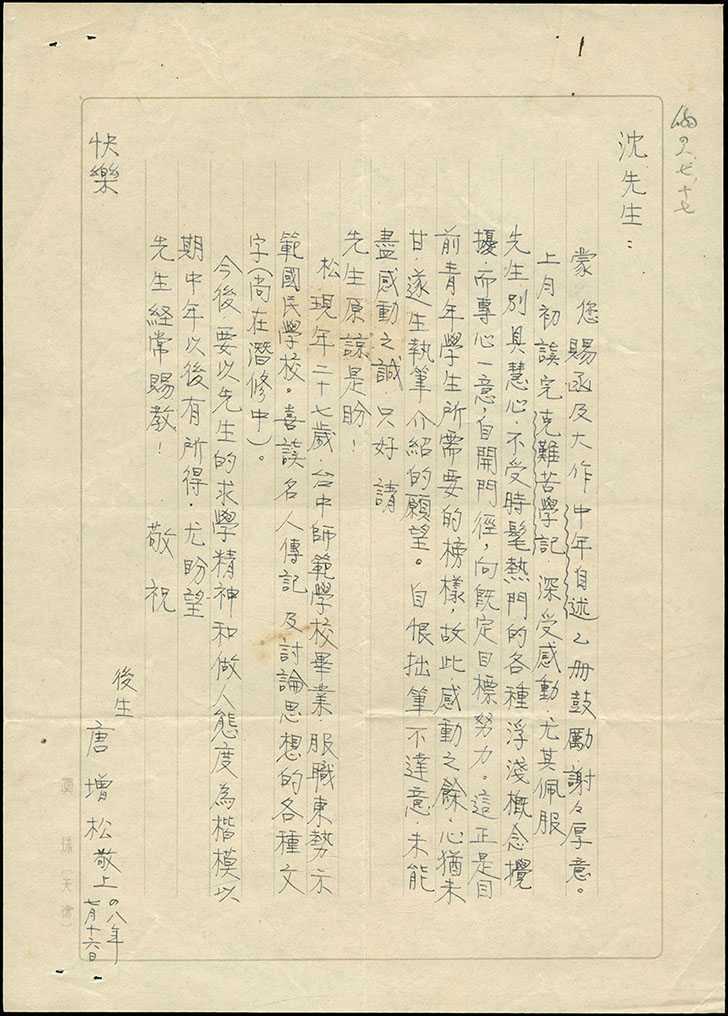 沈先生：
蒙 您賜函及大作中年自述乙册鼓勵，謝々厚意。
上月初讀完克難苦學記，深受感動，尤其佩服
先生別具慧心，不受時髦熱門的各種浮淺概念攪
擾，而專心一意，自開門徑，向既定目標努力。這正是目
前青年學生所需要的榜樣，故此，感動之餘，心猶未
甘，遂生執筆介紹的願望。自恨拙筆不達意，未能
盡感動之誠，只好請
先生原諒是盼！
松現年二十七歲，台中師範學校畢業，服職東勢示
範國民學校。喜讀名人傳記及討論思想的各種文
字(尚在潛修中)。
今後，要以先生的求學精神和做人態度為楷模以
期中年以後有所得，尤盼望
先生経常賜教！ 敬祝
快樂
後生
唐增松敬上
四八年
七月十六日
七、十七